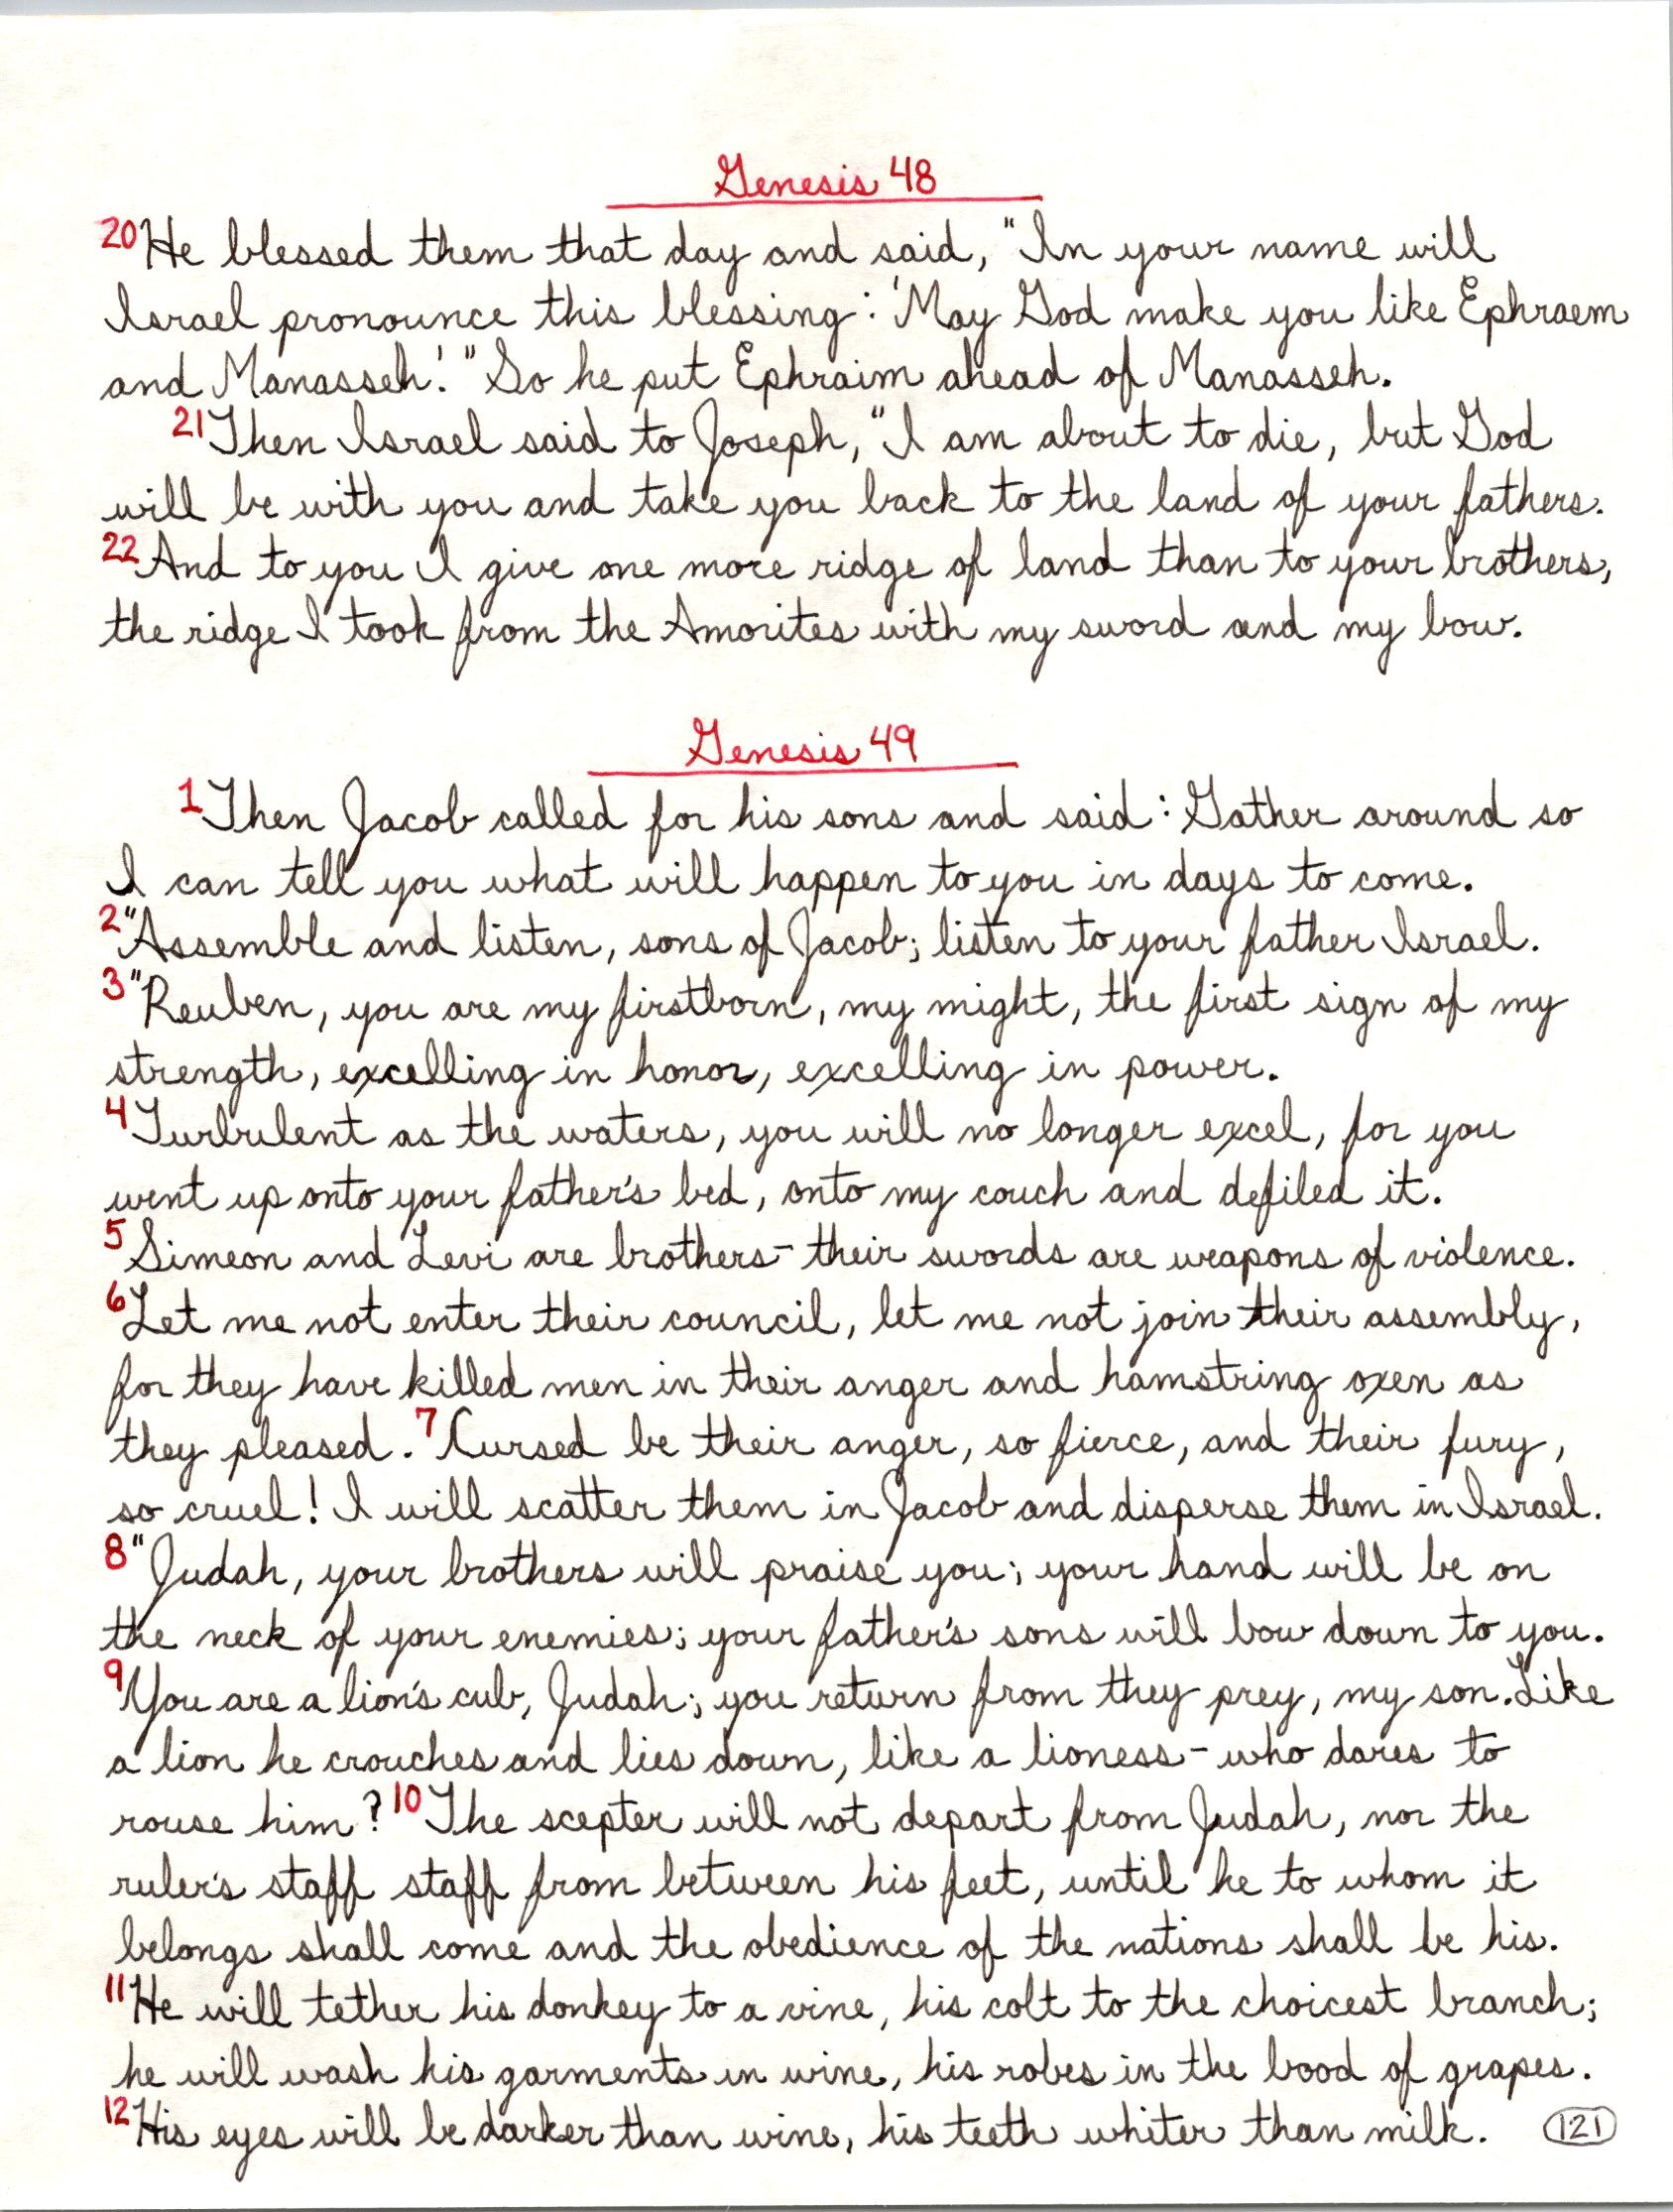 Genesis 48
20 He blessed them that day and said, "In your name will
Israel pronounce this blessing: 'May God make you like Ephraem
and Manasseh.'" So he put Ephraim ahead of Manasseh.
21 Then Israel said to Joseph, "I am about to die, but God
will be with you and take you back to the land of your fathers.
22 And to you I give one more ridge of land than to your brothers,
the ridge I took from the Amorites with my sword and my bow.
Genesis 49
1 Then Jacob called for his sons and said: Gather around so
I can tell you what will happen to you in days to come.
2 "Assemble and listen, sons of Jacob; listen to your father Israel.
3 "Reuben, you are my firstborn, my might, the first sign of my
strength, excelling in honor, excelling in power.
4 Turbulent as the waters, you will no longer excel, for you
went up onto your father's bed, onto my couch and defiled it.
5 Simeon and Levi are brothers - their swords are weapons of violence.
6 Let me not enter their council, let me not join their assembly,
for they have killed men in their anger and hamstring oxen as
they pleased. 7 Cursed be their anger, so fierce, and their fury,
so cruel! I will scatter them in Jacob and disperse them in Israel.
8 "Judah, your brothers will praise you; your hand will be on
the neck of your enemies; your father's sons will bow down to you.
9 You are a lion's cub, Judah; you return from they prey, my son. Like
a lion he crouches and lies down, like a lioness - who dares to
rouse him? 10 The scepter will not depart from Judah, nor the
ruler's staff staff from between his feet, until he to whom it
belongs shall come and the obedience of the nations shall be his.
11 He will tether his donkey to a vine, his colt to the choicest branch;
he will wash his garments in wine, his robes in the bood of grapes.
12 His eyes will be darker than wine, his teeth whiter than milk. 121